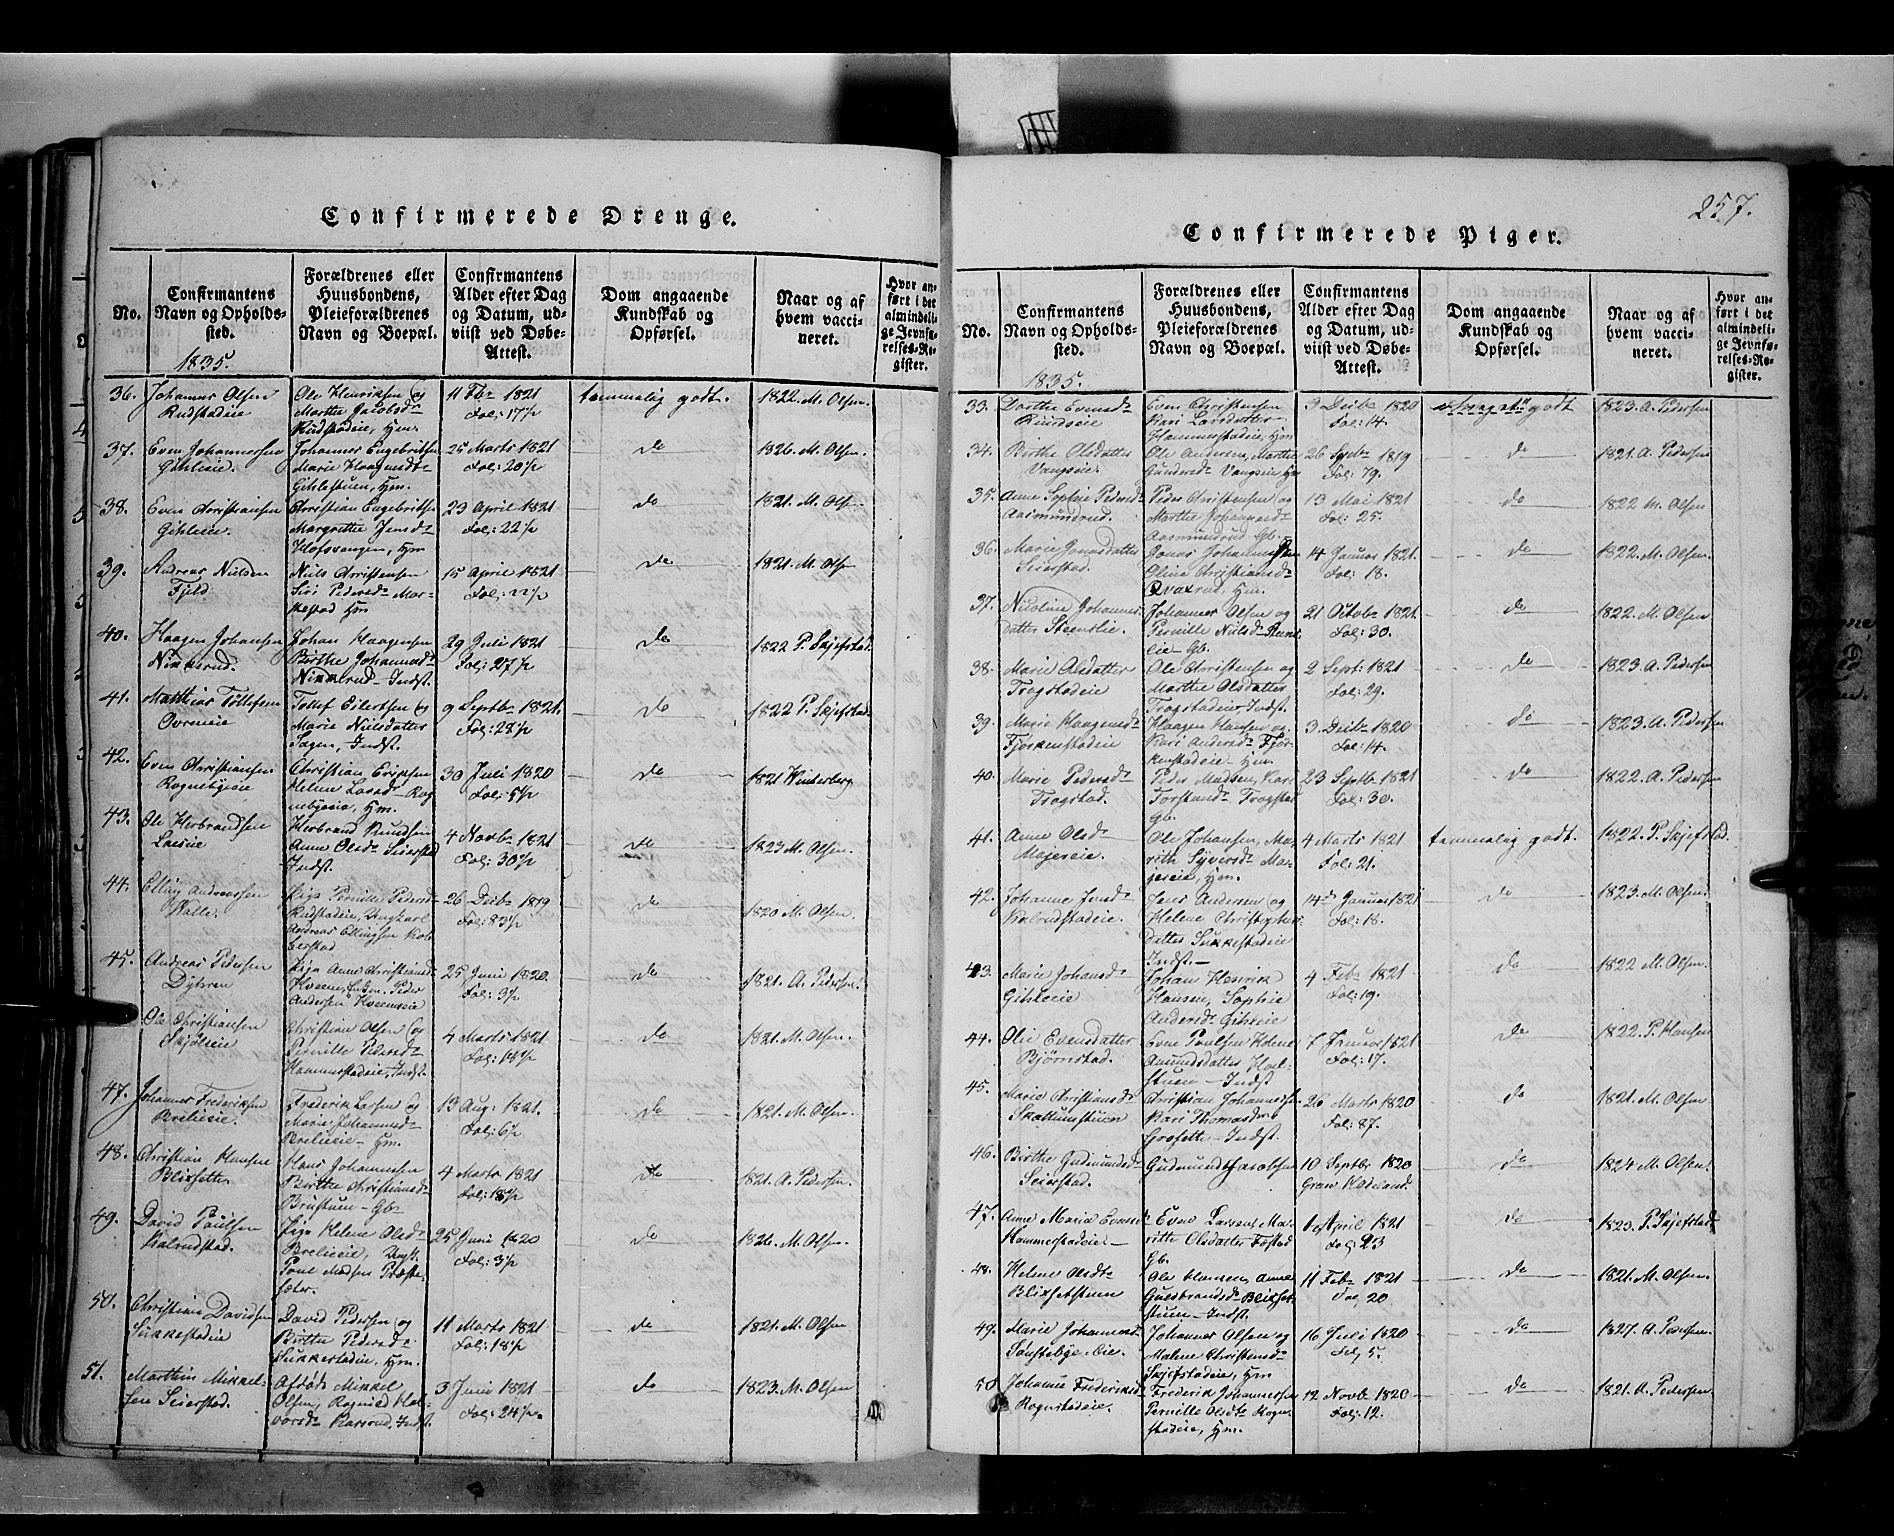 257.
Confirmerede Drenge.
No.
Confirmantens
Navn og Opholds-
sted.
1835.
Forældrenes eller
Huusbondens,
Pleieforældrenes
Navn og Boepæl.
Confirmantens
Alder efter Dag
og Datum, ud-
viist ved Døbe-
Attest.
Dom angaaende
Kundskab og
Opførsel.
Naar og af
hvem vacci-
neret.
Hvor an-
ført i det
almindeli-
ge Jevnfø-
relses-Re-
gister.
36.
Johannes Olsen
Rudstadeie
Ole Henriksen og
Marthe Jacobsdr
Rudstadeie, Hm.
11 Fbr 1821
Fol: 17 1/2
tæmmelig godt.
1822. M. Olsen.
37.
Even Johannessen
Gihleeie.
Johannes Engebritsen
Marie Haagensdr
Gihlestuen, Hm.
25 Marts 1821
Fol: 20 1/2
do
1826. M. Olsen.
38.
Even Christiansen
Gihleeie.
Christian Engebritsen
Margrethe Jensdr
Hofsvangen, Hm
23 April 1821
Fol: 22 1/2
do
1821. M. Olsen
39.
Andreas Nielsen
Fjeld
Niels Christensen
Siri Pedersdr Mar-
kestad Hm
15 April 1821
do
1821. M. Olsen
40.
Haagen Johansen
Nikkerud.
Johan Haagensen
Birthe Johannesdr
Nikkelrud – Indst.
29 Juli 1821
Fol: 27 1/2
do
1822 P. Skjefstad
41.
Matthias Tollefsen
Ovreneie
Tollef Eilertsen og
Marie Nielsdatter
Sagen, Indst.
9 Septbr 1821
Fol: 28 1/2
do
1822 P. Skjefstad
42.
Even Christiansen
Rognebyeie
Christian Eriksen
Helene Larsdr Rog
nebyeie, Hm.
30 Juli 1820
Fol: 5 1/2
do
1821 Winderberg
43.
Ole Herbrandsen
Laeseie
Herbrand Knudsen
Anne Olsdr Seierstad
Indst.
4 Novbr 1821
Fol: 30 1/2
do
1823 M. Olsen.
44.
Elling Andreassen
Kalle.
Pige Pernille Pedersdr
Rudstadeie, Ungkarl
Andreas Ellingsen Kol
berstad
26 Decbr 1819
Fol: 83 1/2
do
1820 M. Olsen.
45.
Andreas Pedersen
Dysren
Pige Anne Christiansdr
Hveem, Enkm. Peder
Andersen Hveemseie
25 Juni 1820.
Fol: 3 1/2
do
1821. A. Pedersen.
Ole Christiansen
Skjølseie
Christian Olsen og
Pernille Pedersdr
Hammerstadeie, Indst.
4 Marts 1821
Fol: 18 1/2
do
1821. M. Olsen.
47.
Johannes Frederiksen
Brelieeie.
Frederik Larsen og
Marie Johannesdr
Brelieeie – Hm.
13 Aug: 1821.
Fol: 6 1/2
do
1821. M. Olsen.
48.
Christian Hansen
Blixsetten
Hans Johannesen
Birthe Christiansdr
Brustuen – Gbr
4 Marts 1821
Fol: 18 1/2
do
1821. A. Pedersen.
49.
David Poulsen
Kalrudstad.
Pige Helene Olsdr
Brelieeie, Ungk.
Poul Madsen Præste-
sæter.
25 Juni 1820
Fol: 3 1/2
do
1826. M. Olsen.
50.
Christian Davidsen
Sukkestadeie
David Pedersen og
Birthe Pedersdr
Sukkestadeie, Hm.
11 Marts 1821
Fol: 18 1/2
do
1821. M. Olsen
51.
Marthin Mikkel-
sen Seierstad.
Afdøde Mikkel
Olsen, Ragnild Hal-
vorsdr Karsrud, Indst.
3 Juni 1821
Fol: 24 1/2.
do
1823. M. Olsen
Confirmerede Piger.
No.
Confirmantens
Navn og Opholds-
sted.
1835.
Forældrenes eller
Huusbondens,
Pleieforældrenes
Navn og Boepæl.
Confirmantens
Alder efter Dag
og Datum, ud-
viist ved Døbe-
Attest.
Dom angaaende
Kundskab og
Opførsel.
Naar og af
hvem vacci-
neret.
Hvor an-
ført i det
almindeli-
ge Jevnfø-
relses-Re-
gister.
33.
Dorthe Evensdr
Rundseie
Even Christensen
Kari Larsdatter
Hammerstadeie, Hm
3 Decbr 1820
Fol: 14.
meget godt
1823. A. Pedersen
34.
Birthe Olsdatter
Vangseie.
Ole Andersen, Marthe
Gundersdr Vangseie, Hm
26 Septbr 1819
Fol: 79.
do
1821. A. Pedersen
35.
Anne Sophie Pedersdr
Aasmundrud.
Peder Christensen og
Marthe Johannesdr
Aasmundrud Gb.
13 Mai 1821
Fol: 25.
do
1822 M. Olsen
36.
Marie Jonasdatter
Seierstad.
Jonas Johannessen
Oline Christiansdr
Qvaxrud, Hm.
14 Januar 1821.
Fol: 18.
do
1822. M. Olsen
37.
Nicoline Johannes
datter Steenslie.
Johannes Olsen og
Pernille Nielsdr Rund
lie – Gb.
21 Octobr 1821
Fol: 30.
do
1822. M. Olsen
38.
Marie Olsdatter
Trogstadeie
Ole Christensen og
Marthe Olsdatter
Trogstadeie, Indst.
2 Sept: 1821
Fol: 29.
do
1823 A. Pedersen
39.
Marie Haagensdr
Fjorkenstadeie
Haagen Hansen og
Kari Andersdr Fjor-
kenstadeie – Hm.
3 Decbr 1820
Fol: 14.
do
1823. A. Pedersen
40.
Marie Pedersdr
Trogstad.
Peder Madsen, Kari
Torstensdr Trogstad
Gb.
23 Septbr 1821
Fol: 30.
do
1822. A. Pedersen
41.
Anne Olsdr
Majereie.
Ole Johansen, Ma-
rithe Syversdr Ma-
jereie, Hm.
4 Marts 1821
Fol: 21.
tæmmelig godt.
1822. P. Skjefstad.
42.
Johanne Jensdr
Kalrudstadeie.
Jens Andersen og
Helene Christophers
datter Sukkestadeie
Indst. –
14de Januar 1821
Fol: 18.
do
1823. M. Olsen.
43.
Marie Johansdr
Gihleeie
Johan Henrik
Hansen, Sophie
Andersdr Gihleeie
4 Febr 1821
Fol: 19.
do
1822 M. Olsen.
44.
Olie Evensdatter
Bjørnstad.
Even Poulsen Helene
Amundsdatter Hoel-
stuen – Indst
7 Januar 1821
Fol: 17.
do
1822. P. Hansen
45.
Marie Christiansdr
Skattumstuen
Christian Johannessen
Kari Thomasdr
Grosetter – Indst.
26 Marts 1820
Fol: 87.
do
1821. M. Olsen
46.
Birthe Gudmundsdr
Seierstad.
Gudmund Jacobsen
10 Septbr 1820
Gran Hadeland.
do
1824 M. Olsen.
47.
Anne Maria Evensdr
Hammerstadeie –
Even Larsen, Ma-
rithe Olsdatter Fæstad
Gb.
1 April 1821
Fol: 23
do
1823. P. Skjefstad
48.
Helene Olsdr
Blixsetstuen
Ole Hansen, Anne
Guldbrandsdr Blixset-
stuen – Indst.
11 Febr 1821
Fol, 20.
do
1821. M. Olsen.
49.
Marie Johannesdr
Sønsteby-eie.
Johannes Olsen og
Malene Christensdr
Skjefstadeie, Hm
16 Juli 1820
Fol, 5.
do
1827. A. Pedersen.
50
Johanne Frederiksdr
Rognstadeie.
Frederik Johannessen
Pernille Olsdr Rogn-
stadeie, Hm.
12 Novbr 1820
Fol: 12.
do
1821. A. Pedersen.